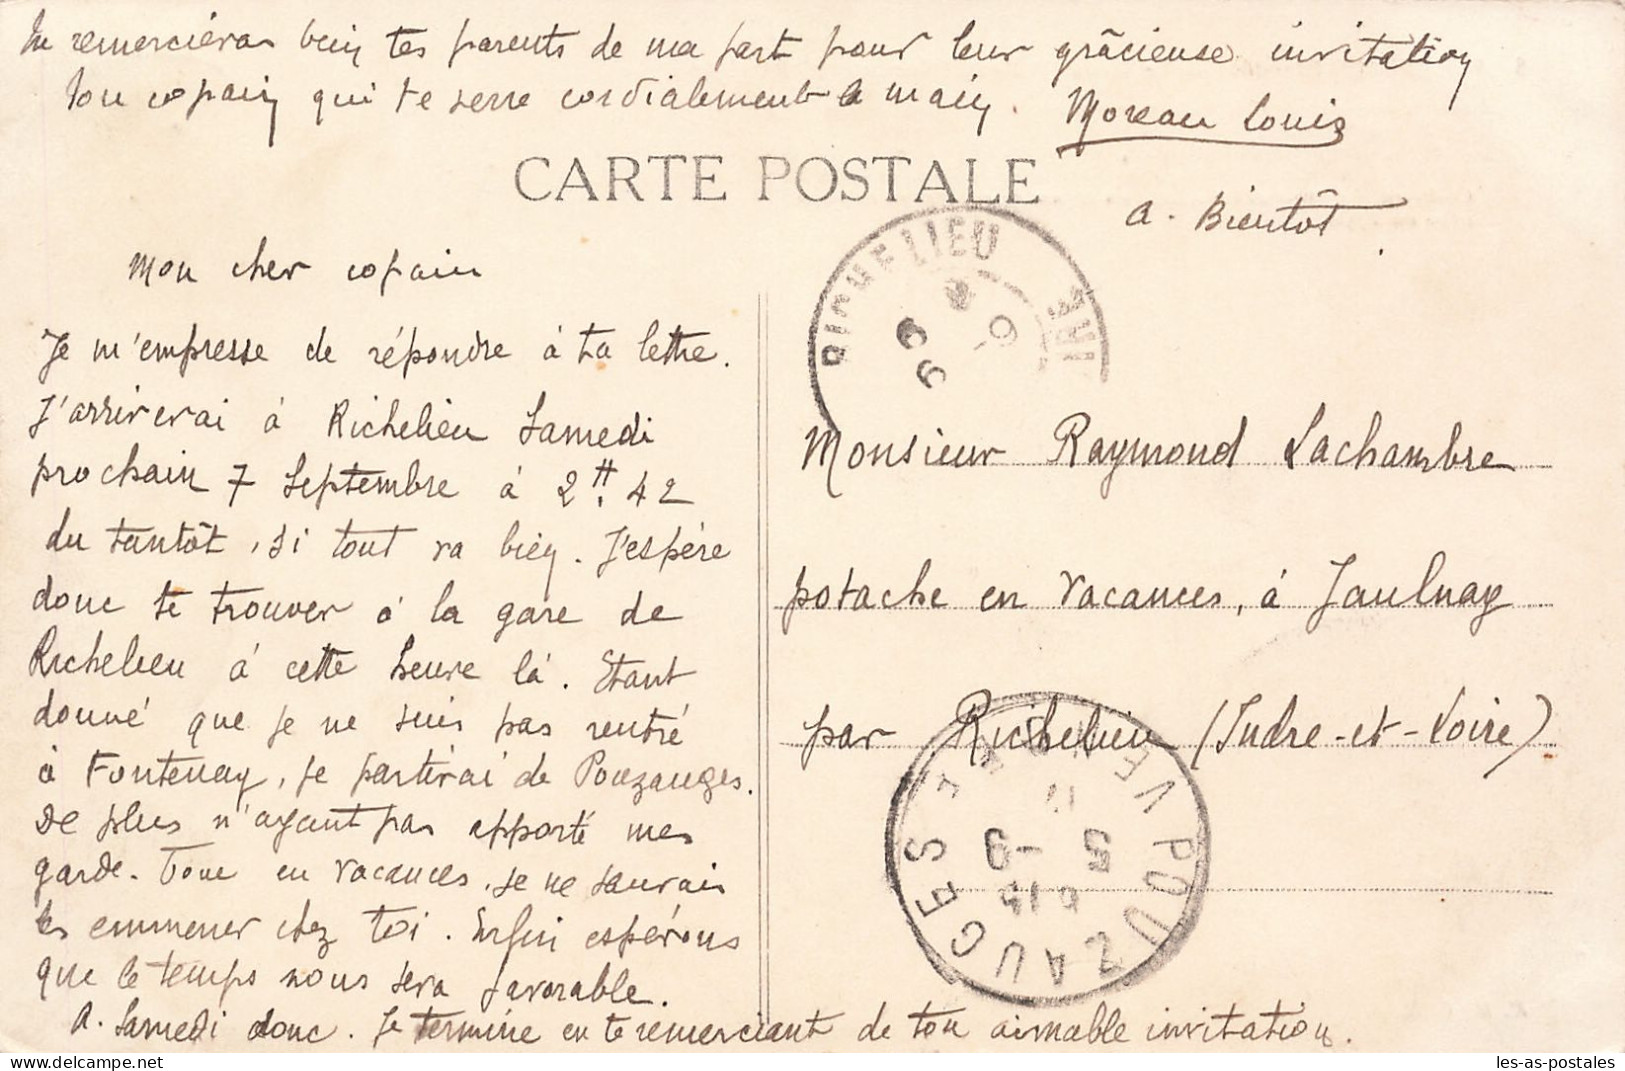 Tu remercieras bien tes parents de ma part pour leur grâcieuse invitation
Ton copain qui te serre cordialement la main. Moreau Louis
CARTE POSTALE
a. Bientôt.
RICHELIEU
Mon cher copain
Je m'empresse de répondre à ta lettre.
J'arriverai à Richelieu Samedi
prochain 7 Septembre à 2H.42
du tantôt, si tout va bien. J'espère
donc te trouver à la gare de
Richelieu à cette heure là. Etant
donné que je ne suis pas rentré
à Fontenay, je partirai de Pouzauges.
De plus n'ayant pas apporté mes
garde. Tone en vacances, je ne saurais
les emmener chez toi. Enfin espérons
que le temps nous sera favorable.
A. Samedi donc. Je termine en te remerciant de ton aimable invitation.
Monsieur Raymond Lachambre
potache en vacances, à Jaulnay
par Richelieu (Indre-et-Loire)
POUZAUGES
5 -9
les-as-postales